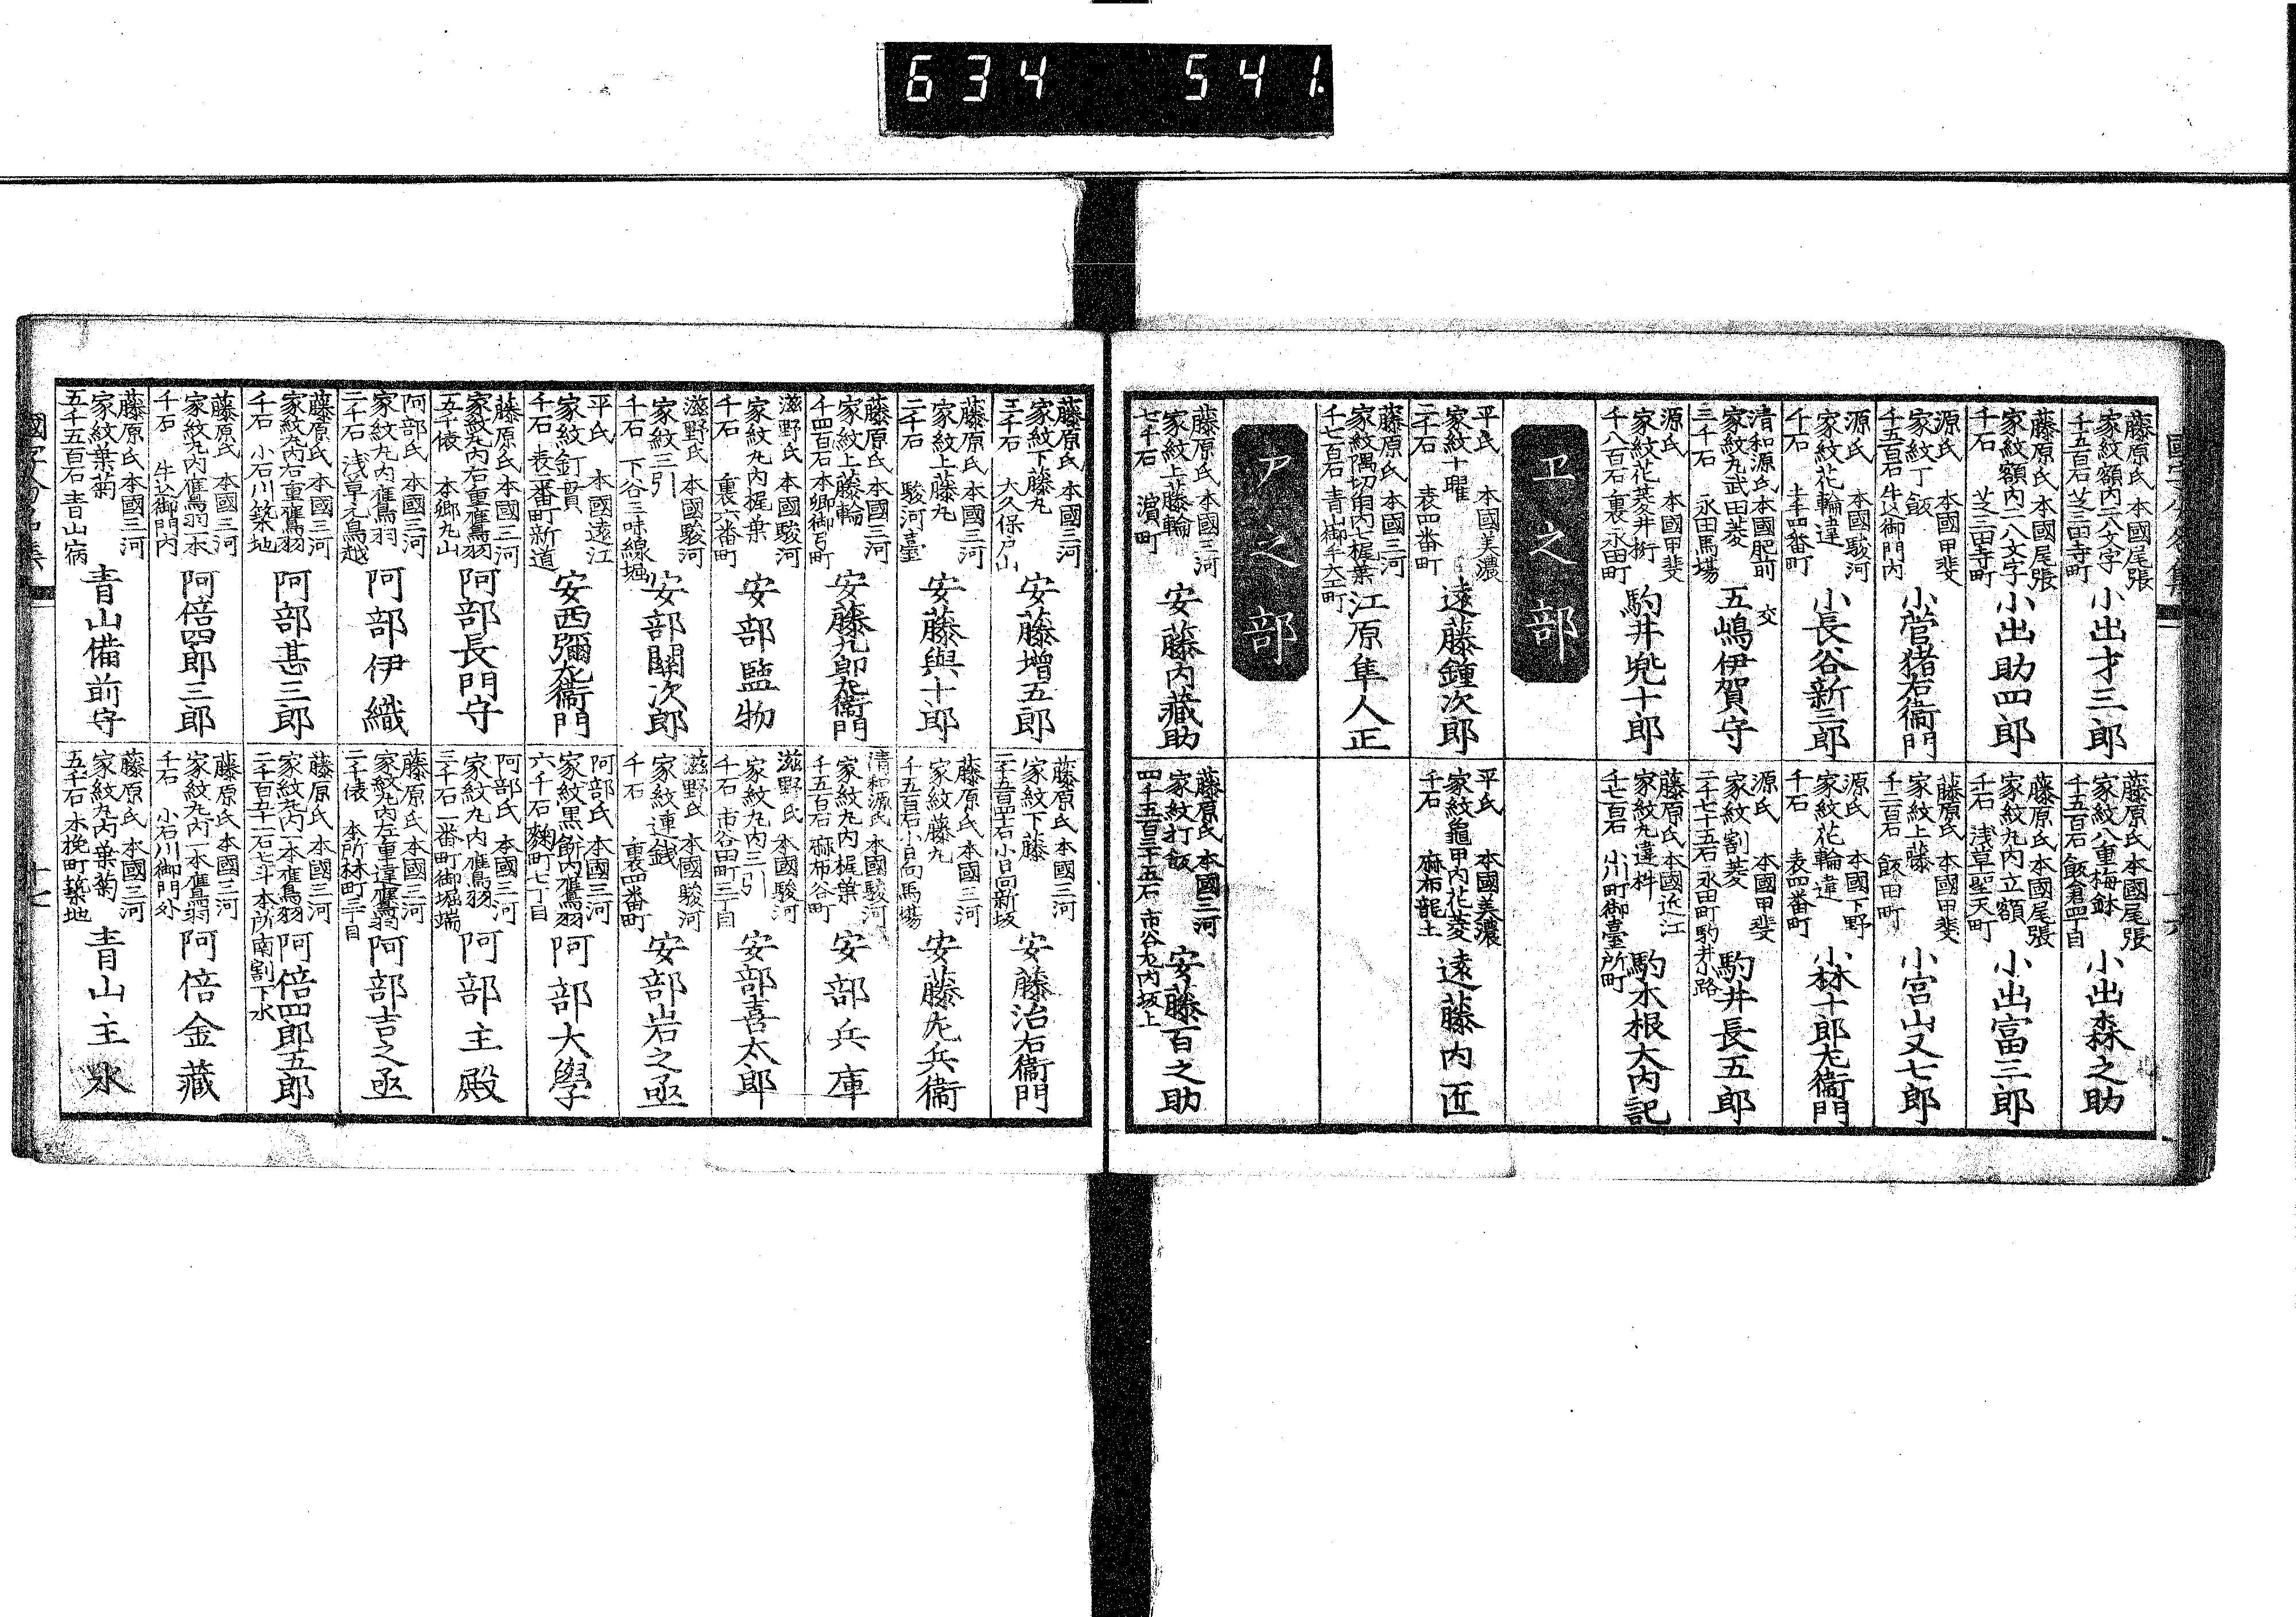 634 541.
藤原氏 本國尾張
家紋額内二八文字
千五百石 芝三田寺町
小出才三郎
藤原氏 本國尾張
家紋八重梅鉢
千五百石 飯倉四丁目
小出森之助
藤原氏 本國尾張
家紋額内二八文字
千石 芝三田寺町
小出助四郎
藤原氏 本國尾張
家紋丸内立額
千石 浅草聖天町
小出富三郎
源氏 本國甲斐
家紋丁飯
千五百石 牛込御門内
小菅猪右衞門
藤原氏 本國甲斐
家紋上藤
千二百石 飯田町
小宮山又七郎
源氏 本國駿河
家紋花輪違
千石 土手四番町
小長谷新三郎
源氏 本國下野
家紋花輪違
千石 表四番町
小林十郎左衞門
清和源氏 本國肥前
家紋丸武田菱
三千石 永田馬場
交
五嶋伊賀守
源氏 本國甲斐
家紋割菱
二千七十五石 永田町駒井小路
駒井長五郎
源氏 本國甲斐
家紋花菱井桁
千八百石 裏永田町
駒井兠十郎
藤原氏 本國近江
家紋丸違枓
千七百石 小川町御臺所町
駒木根大内記
エ之部
平氏 本國美濃
家紋十曜
二千石 表四番町
遠藤鐘次郎
平氏 本國美濃
家紋龜甲内花菱
千石 麻布龍土
遠藤内匠
藤原氏 本國三河
家紋隅切角内七梶葉
千七百石 青山御手大工町
江原隼人正
ア之部
藤原氏 本國三河
家紋上藤輪
七千石 濵町
安藤内藏助
藤原氏 本國三河
家紋打飯
四千五百三十五石 市谷左内坂上
安藤百之助
藤原氏 本國三河
家紋下藤丸
三千石 大久保戸山
安藤増五郎
藤原氏 本國三河
家紋下藤
二千五百四十石 小日向新坂
安藤治右衞門
藤原氏 本國三河
家紋上藤丸
二千石 駿河臺
安藤與十郎
藤原氏 本國三河
家紋藤丸
千五百石 小日向馬場
安藤左兵衞
藤原氏 本國三河
家紋上藤輪
千四百石 本郷御弓町
安藤九郎左衞門
清和源氏 本國駿河
家紋丸内梶葉
千五百石 麻布谷町
安部兵庫
滋野氏 本國駿河
家紋丸内梶葉
千石 裏六番町
安部監物
滋野氏 本國駿河
家紋丸内三引
千石 市谷田町三丁目
安部喜太郎
滋野氏 本國駿河
家紋三引
千石 下谷三味線堀
安部關次郎
滋野氏 本國駿河
家紋連銭
千石 裏四番町
安部岩之丞
平氏 本國遠江
家紋釘貫
千石 表二番町新道
安西彌左衞門
阿部氏 本國三河
家紋黒餅内鷹羽
六千石 麹町七丁目
阿部大學
藤原氏 本國三河
家紋丸内右重鷹羽
五千俵 本郷丸山
阿部長門守
阿部氏 本國三河
家紋丸内鷹羽
三千石 一番町御堀端
阿部主殿
阿部氏 本國三河
家紋丸内鷹羽
二千石 浅草元鳥越
阿部伊織
藤原氏 本國三河
家紋丸内左重違鷹羽
二千俵 本所林町三丁目
阿部吉之丞
藤原氏 本國三河
家紋丸内右重鷹羽
千石 小石川築地
阿部甚三郎
藤原氏 本國三河
家紋丸内一本鷹羽
二千百五十二石七斗 本所南割下水
阿倍四郎五郎
藤原氏 本國三河
家紋丸内鷹羽一本
千石 牛込御門内
阿倍四郎三郎
藤原氏 本國三河
家紋丸内一本鷹羽
千石 小石川御門外
阿倍金藏
藤原氏 本國三河
家紋葉菊
五千五百石 青山宿
青山備前守
藤原氏 本國三河
家紋丸内葉菊
五千石 木挽町築地
青山主水
十七